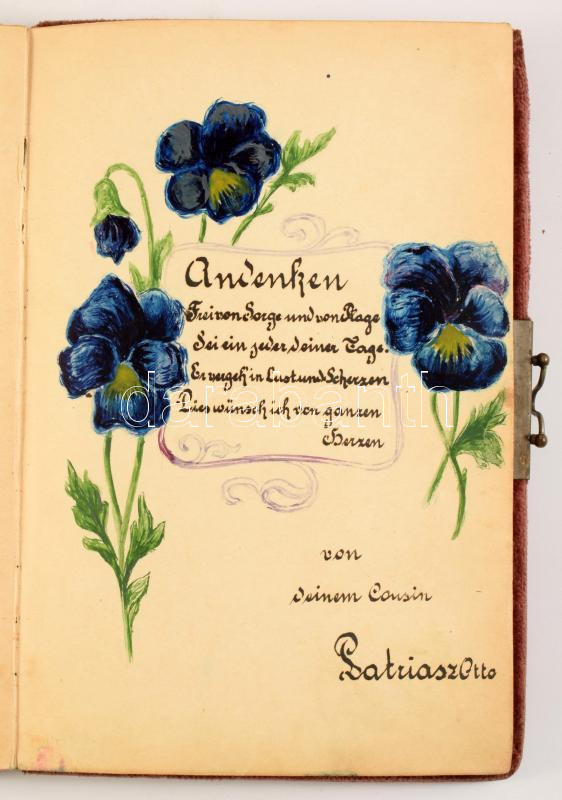 Andenken
Frei von Sorge und von Plage
Sei ein jeder deiner Tage.
Er vergeh' in Lust und Scherzen
Dies wünsch ich von ganzen
Herzen
von
deinem Cousin
Patriasz Otto
darabanth